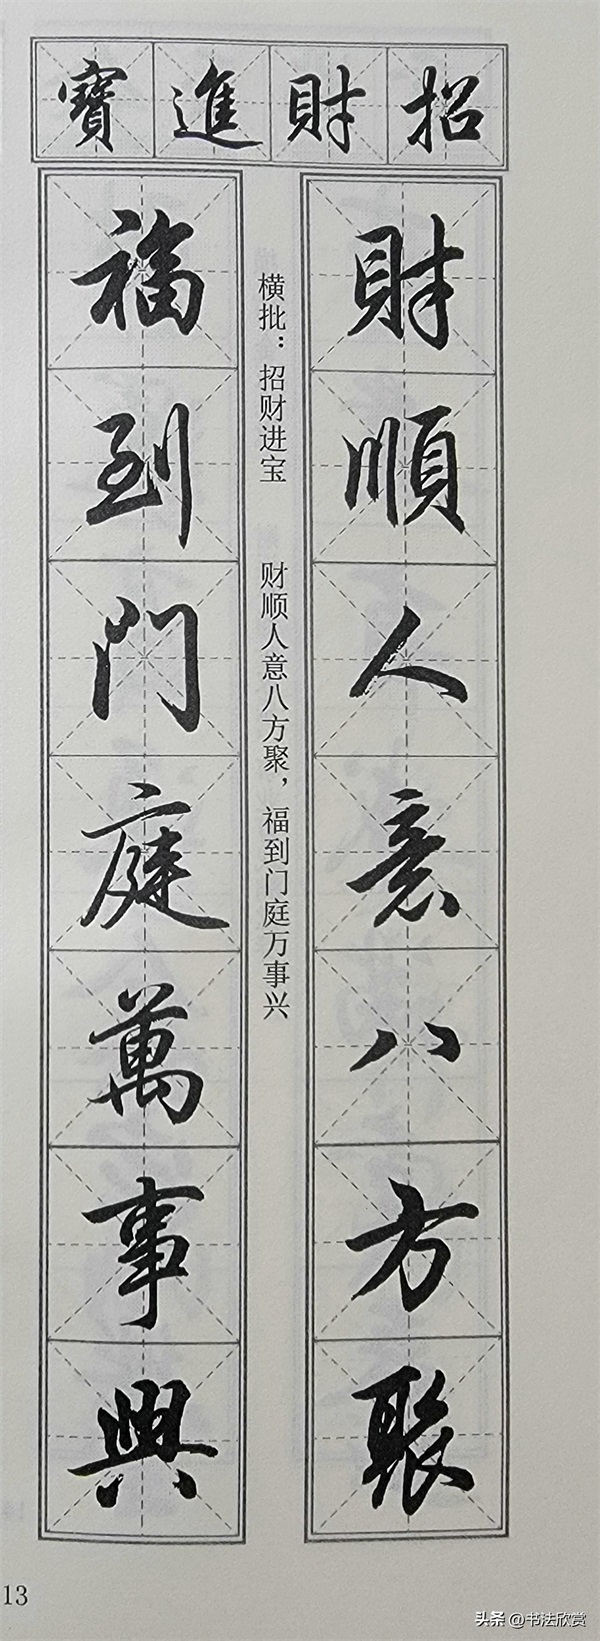 招財進寶
財順人意八方聚
横批：招财进宝　财顺人意八方聚，福到门庭万事兴
福到门庭萬事興
13
头条 @书法欣赏